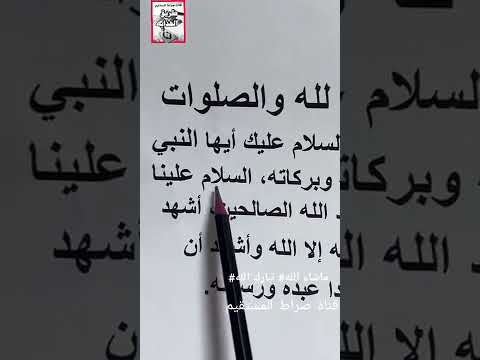 لله والصلوات
لسلام عليك أيها النبي
وبركاته، السلام علينا
د الله الصالحين أشهد
ه إلا الله وأشهد أن
#ماشاء الله# تبارك الله
دا عبده ورسوله.
قناة صراط المستقيم